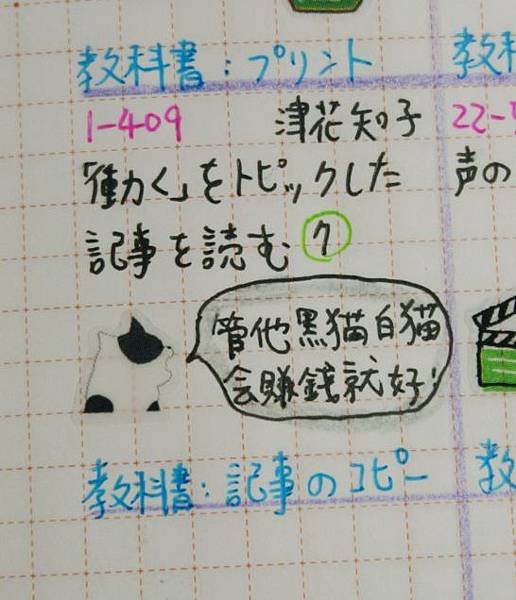 教科書：プリント
1-409 津花知子
「働く」をトピックした
記事を読む ⑦
管他黑猫白猫
会賺錢就好！
教科書：記事のコピー
教科
22-
声の
教